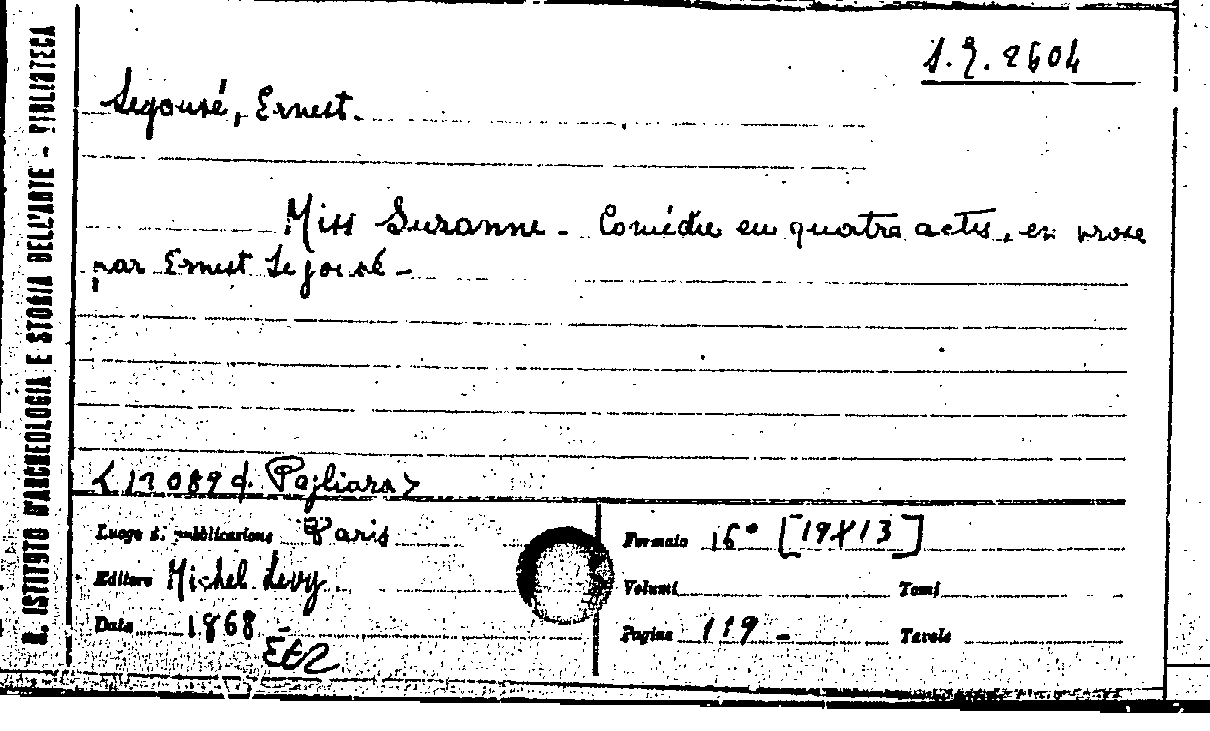 R. ISTITUTO D'ARCHEOLOGIA E STORIA DELL'ARTE - BIBLIOTECA
Legouvé, Ernest.
Miss Suzanne - Comédie en quatre actes, en prose
par Ernest Legouvé -
Pagliara>
Luogo d. pubblicazione Paris
Editore Michel Levy
Data 1868 -
Formato 16° [19X13]
Volumi Tomi
Pagine 119 - Tavole